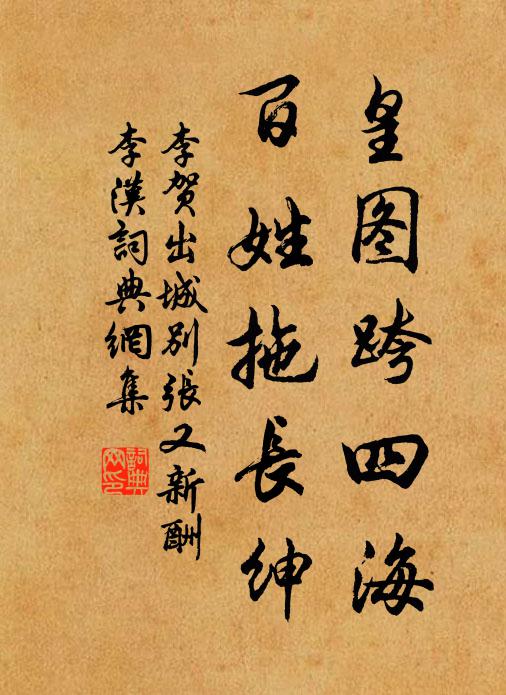 皇图跨四海
百姓拖長紳
李贺出城别張又新酬
李漢詞典網集
詞典网印